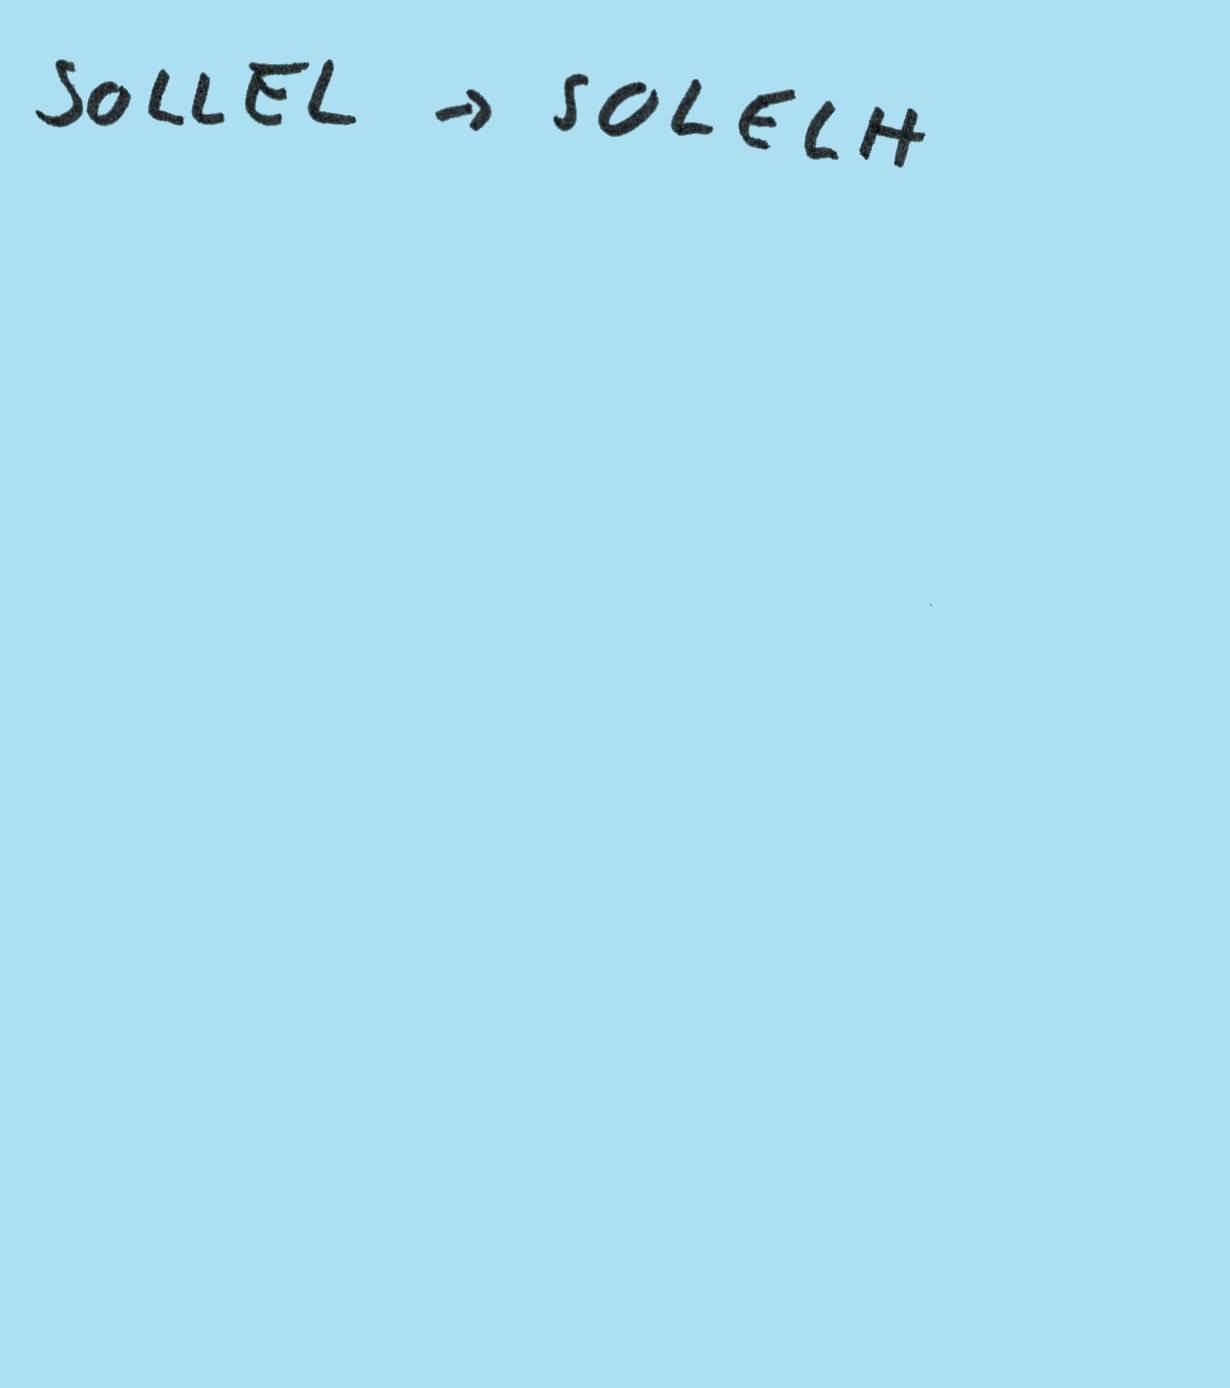 SOLLEL → SOLELH